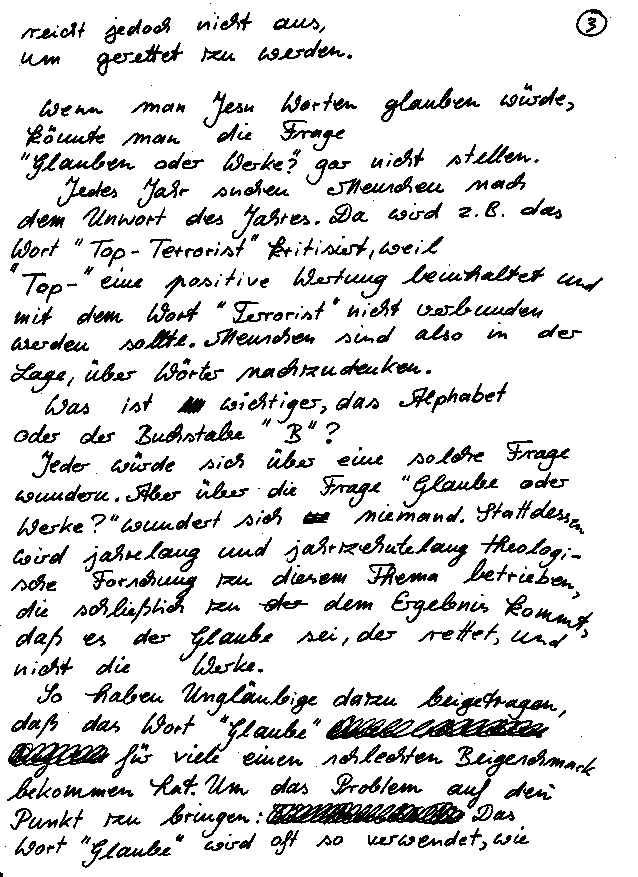 reicht jedoch nicht aus,
3
um gerettet zu werden.
Wenn man Jesu Worten glauben würde,
könnte man die Frage
"Glauben oder Werke?" gar nicht stellen.
Jedes Jahr suchen Menschen nach
dem Unwort des Jahres. Da wird z.B. das
Wort "Top-Terrorist" kritisiert, weil
"Top-" eine positive Wertung beinhaltet und
mit dem Wort "Terrorist" nicht verbunden
werden sollte. Menschen sind also in der
Lage, über Wörter nachzudenken.
Was ist wichtiger, das Alphabet
oder der Buchstabe "B"?
Jeder würde sich über eine solche Frage
wundern. Aber über die Frage "Glaube oder
Werke?" wundert sich niemand. Stattdessen
wird jahrelang und jahrzehntelang theologi-
sche Forschung zu diesem Thema betrieben,
die schließlich zu der dem Ergebnis kommt,
daß es der Glaube sei, der rettet, und
nicht die Werke.
So haben Ungläubige dazu beigetragen,
daß das Wort "Glaube"
für viele einen schlechten Beigeschmack
bekommen hat. Um das Problem auf den
Punkt zu bringen: Das
Wort "Glaube" wird oft so verwendet, wie